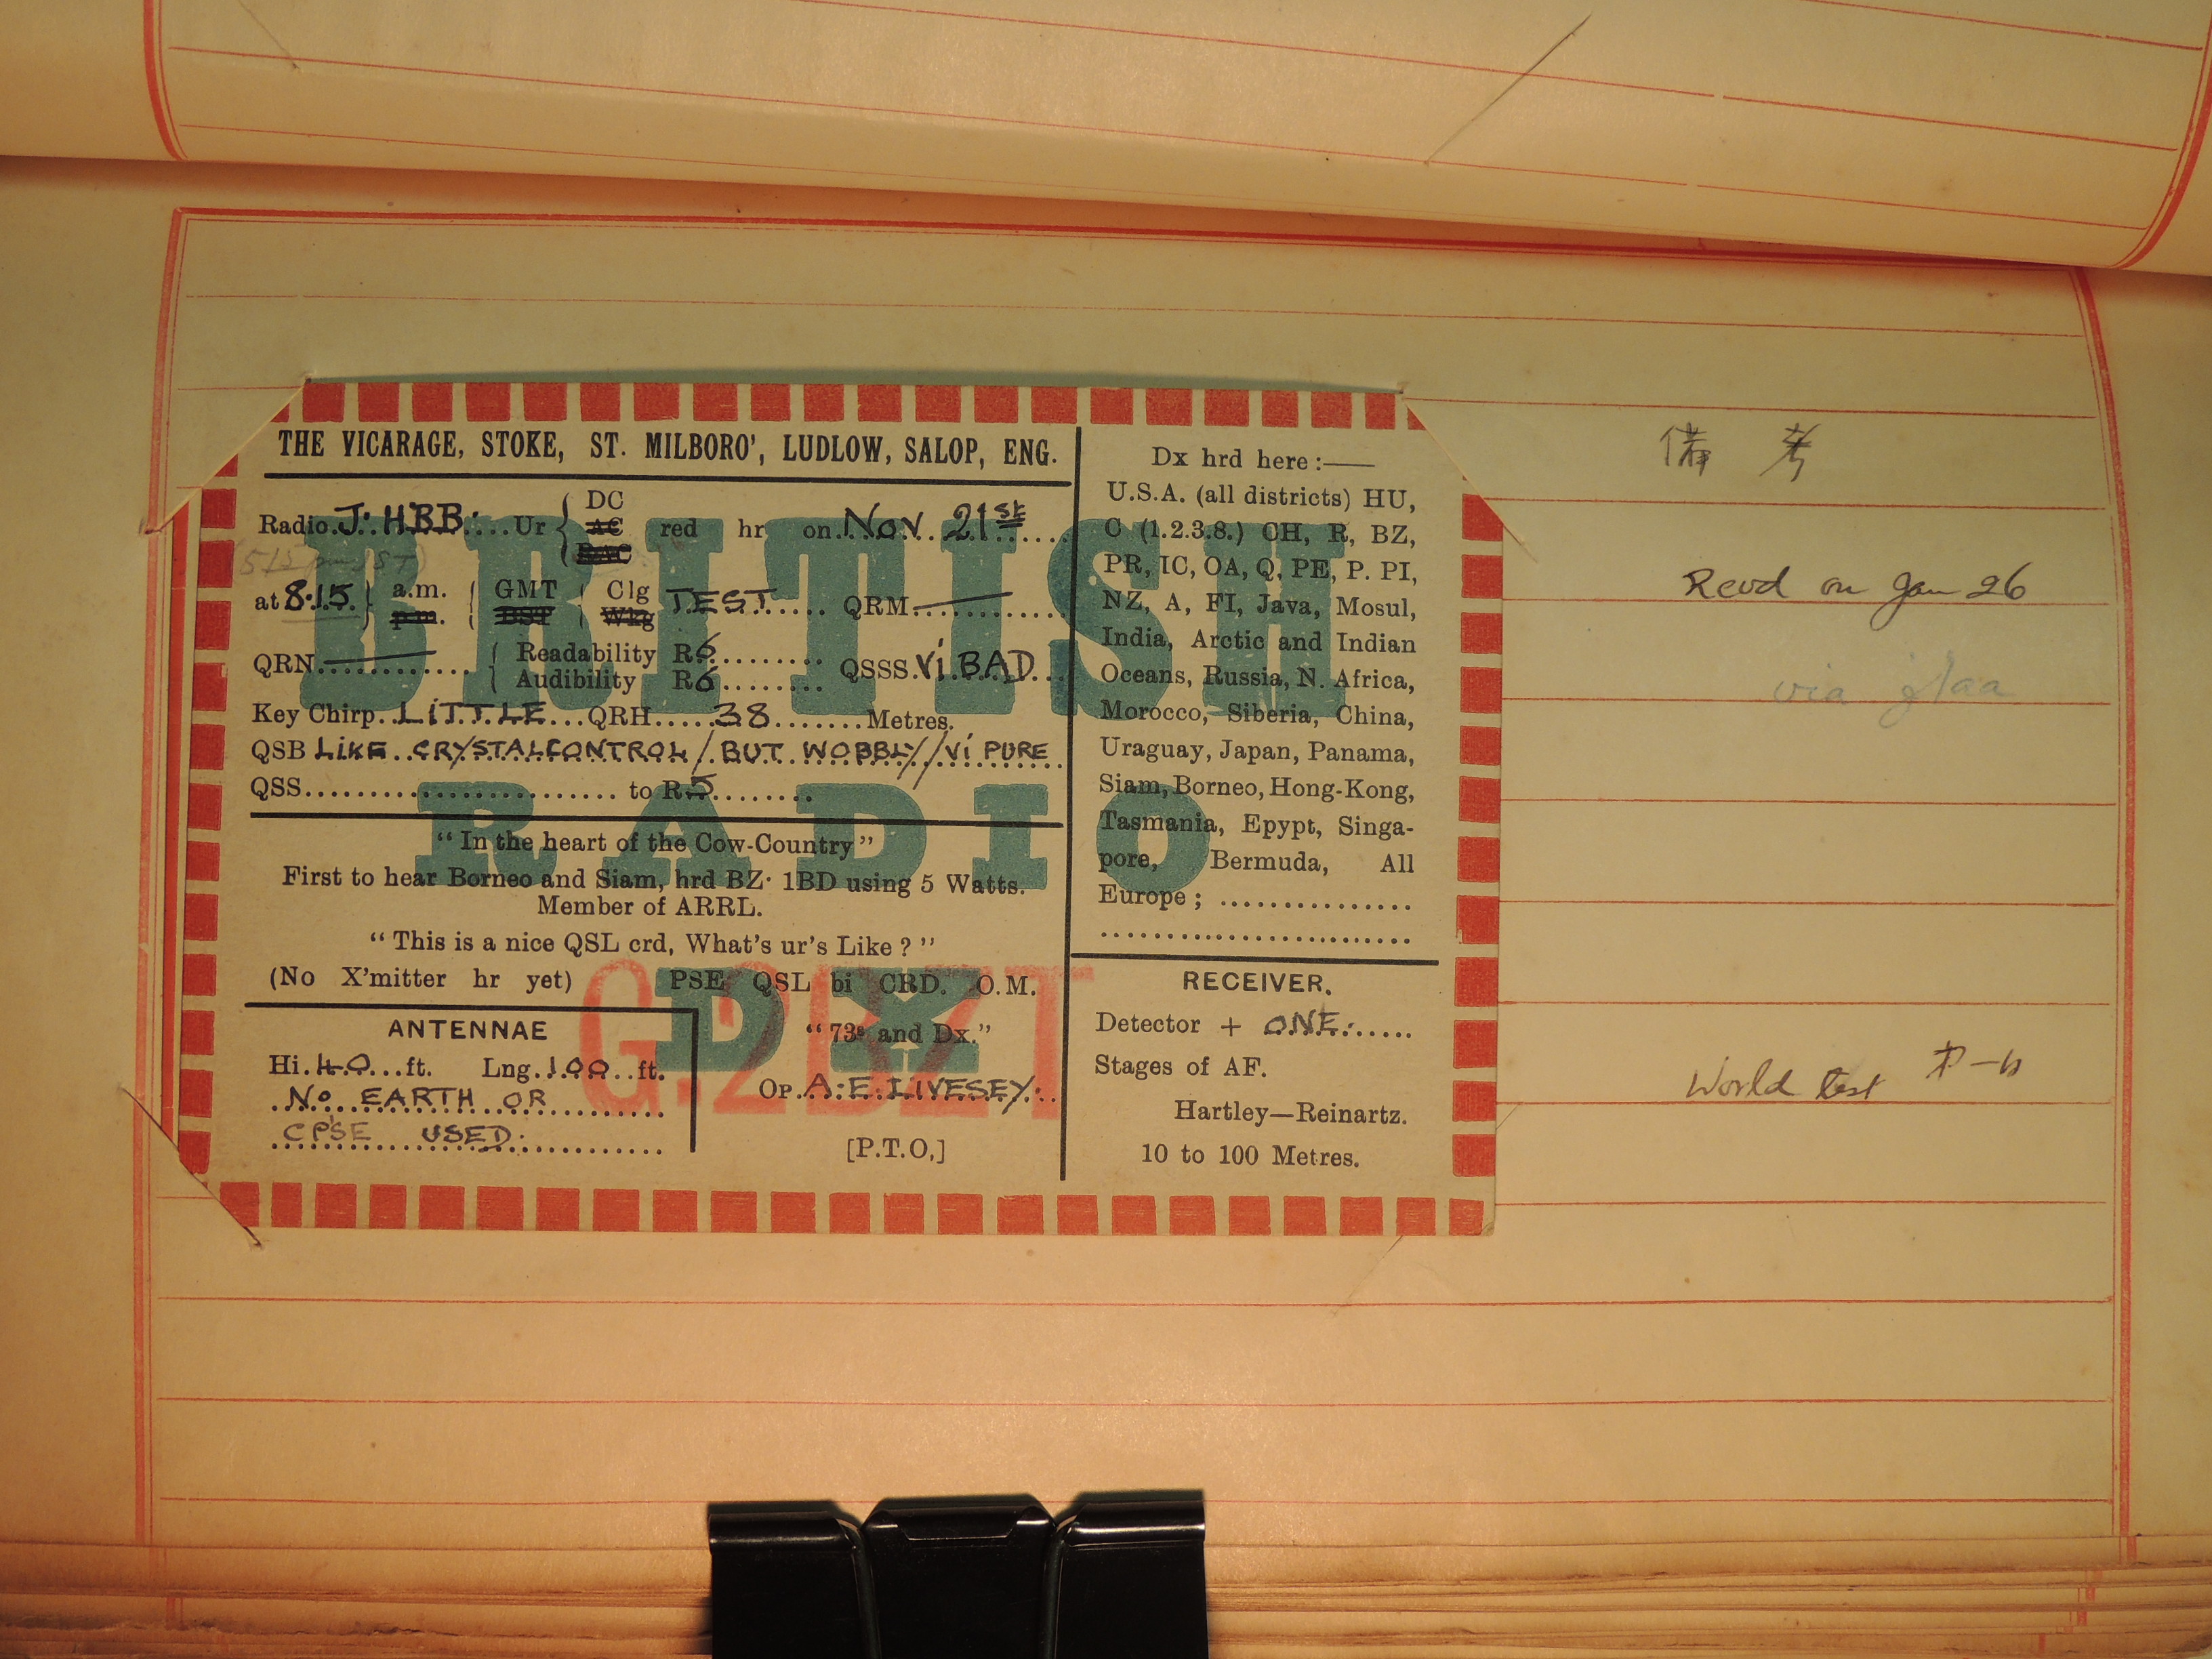 THE VICARAGE, STOKE, ST. MILBORO', LUDLOW, SALOP, ENG.
Radio. J. HBB. Ur DC AC RAC red hr on Nov. 21st
at 8.15. a.m. p.m. GMT BST Clg Wkg TEST QRM
QRN Readability R6 QSSS. Vi. BAD.
Audibility R6
Key Chirp. LITTLE QRH 38 Metres.
QSB LIKE CRYSTAL CONTROL / BUT WOBBLY // Vi PURE
QSS to R.5
BRITISH
RADIO
DX
G.2BZT
"In the heart of the Cow-Country"
First to hear Borneo and Siam, hrd BZ· 1BD using 5 Watts.
Member of ARRL.
"This is a nice QSL crd, What's ur's Like ?"
(No X'mitter hr yet) PSE QSL bi CRD. O.M.
ANTENNAE
Hi. 40 ft. Lng. 100 ft.
No EARTH OR
CPSE USED.
"73s and Dx."
Op. A. E. LIVESEY.
[P.T.O,]
Dx hrd here :—
U.S.A. (all districts) HU,
C (1.2.3.8.) CH, R, BZ,
PR, IC, OA, Q, PE, P. PI,
NZ, A, FI, Java, Mosul,
India, Arctic and Indian
Oceans, Russia, N. Africa,
Morocco, Siberia, China,
Uraguay, Japan, Panama,
Siam, Borneo, Hong-Kong,
Tasmania, Epypt, Singa-
pore, Bermuda, All
Europe ;
RECEIVER.
Detector + ONE.
Stages of AF.
Hartley—Reinartz.
10 to 100 Metres.
備考
Recvd on Jan 26
via
World test